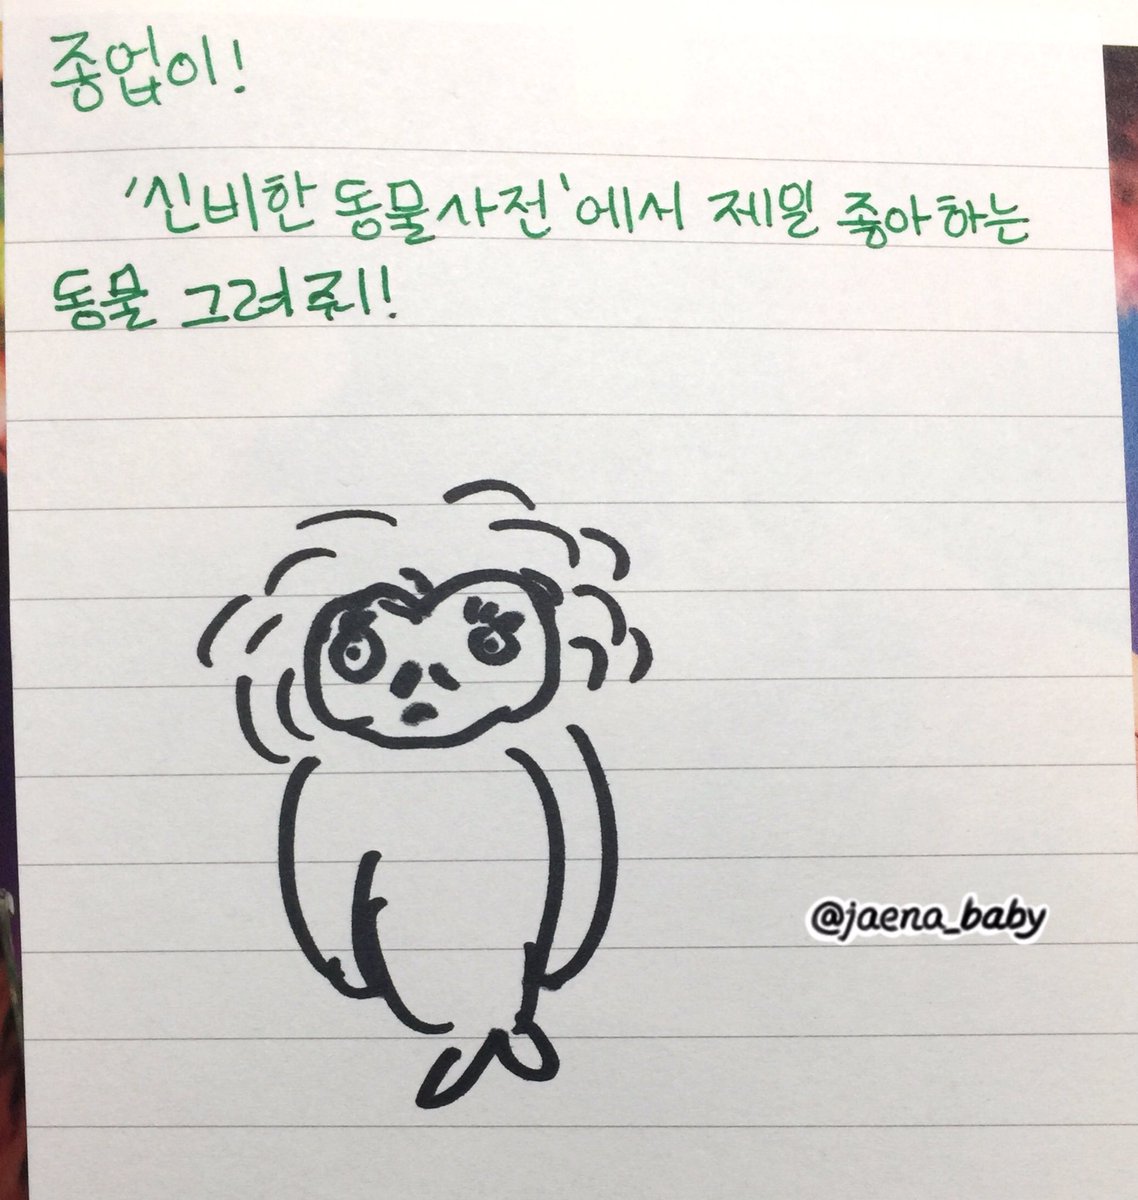 종업이!
'신비한 동물사전'에서 제일 좋아하는
동물 그려줘!
@jaena_baby